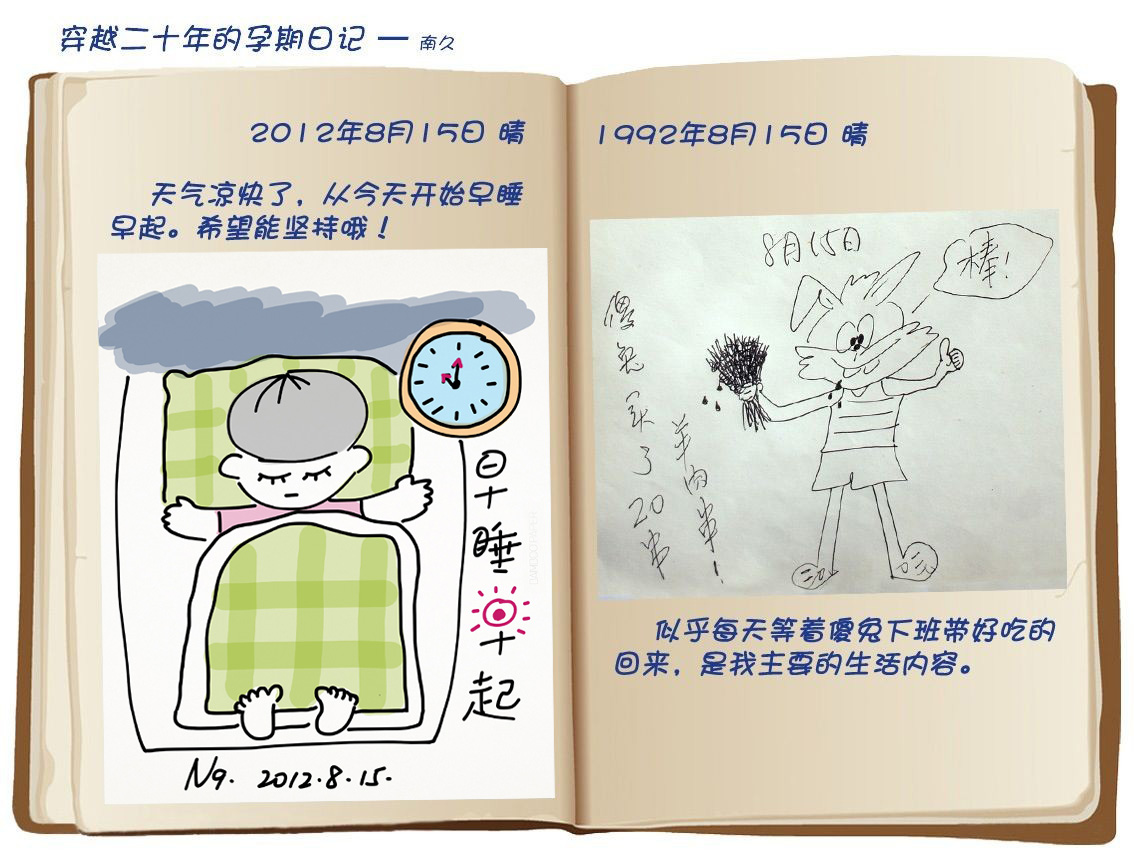 穿越二十年的孕期日记 — 南久
2012年8月15日 晴
天气凉快了，从今天开始早睡
早起。希望能坚持哦！
早睡早起
N9. 2012.8.15.
1992年8月15日 晴
8月15日
棒！
傻兔买了20串
羊肉串！
似乎每天等着傻兔下班带好吃的
回来，是我主要的生活内容。